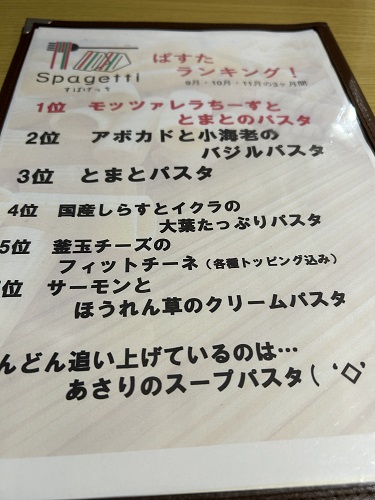 Spagetti
すぱげっち
ぱすた
ランキング！
9月・10月・11月の3ヶ月間
1位 モッツァレラちーずと
とまとのパスタ
2位 アボカドと小海老の
バジルパスタ
3位 とまとパスタ
4位 国産しらすとイクラの
大葉たっぷりパスタ
5位 釜玉チーズの
フィットチーネ（各種トッピング込み）
位 サーモンと
ほうれん草のクリームパスタ
んどん追い上げているのは…
あさりのスープパスタ( ‘◇’